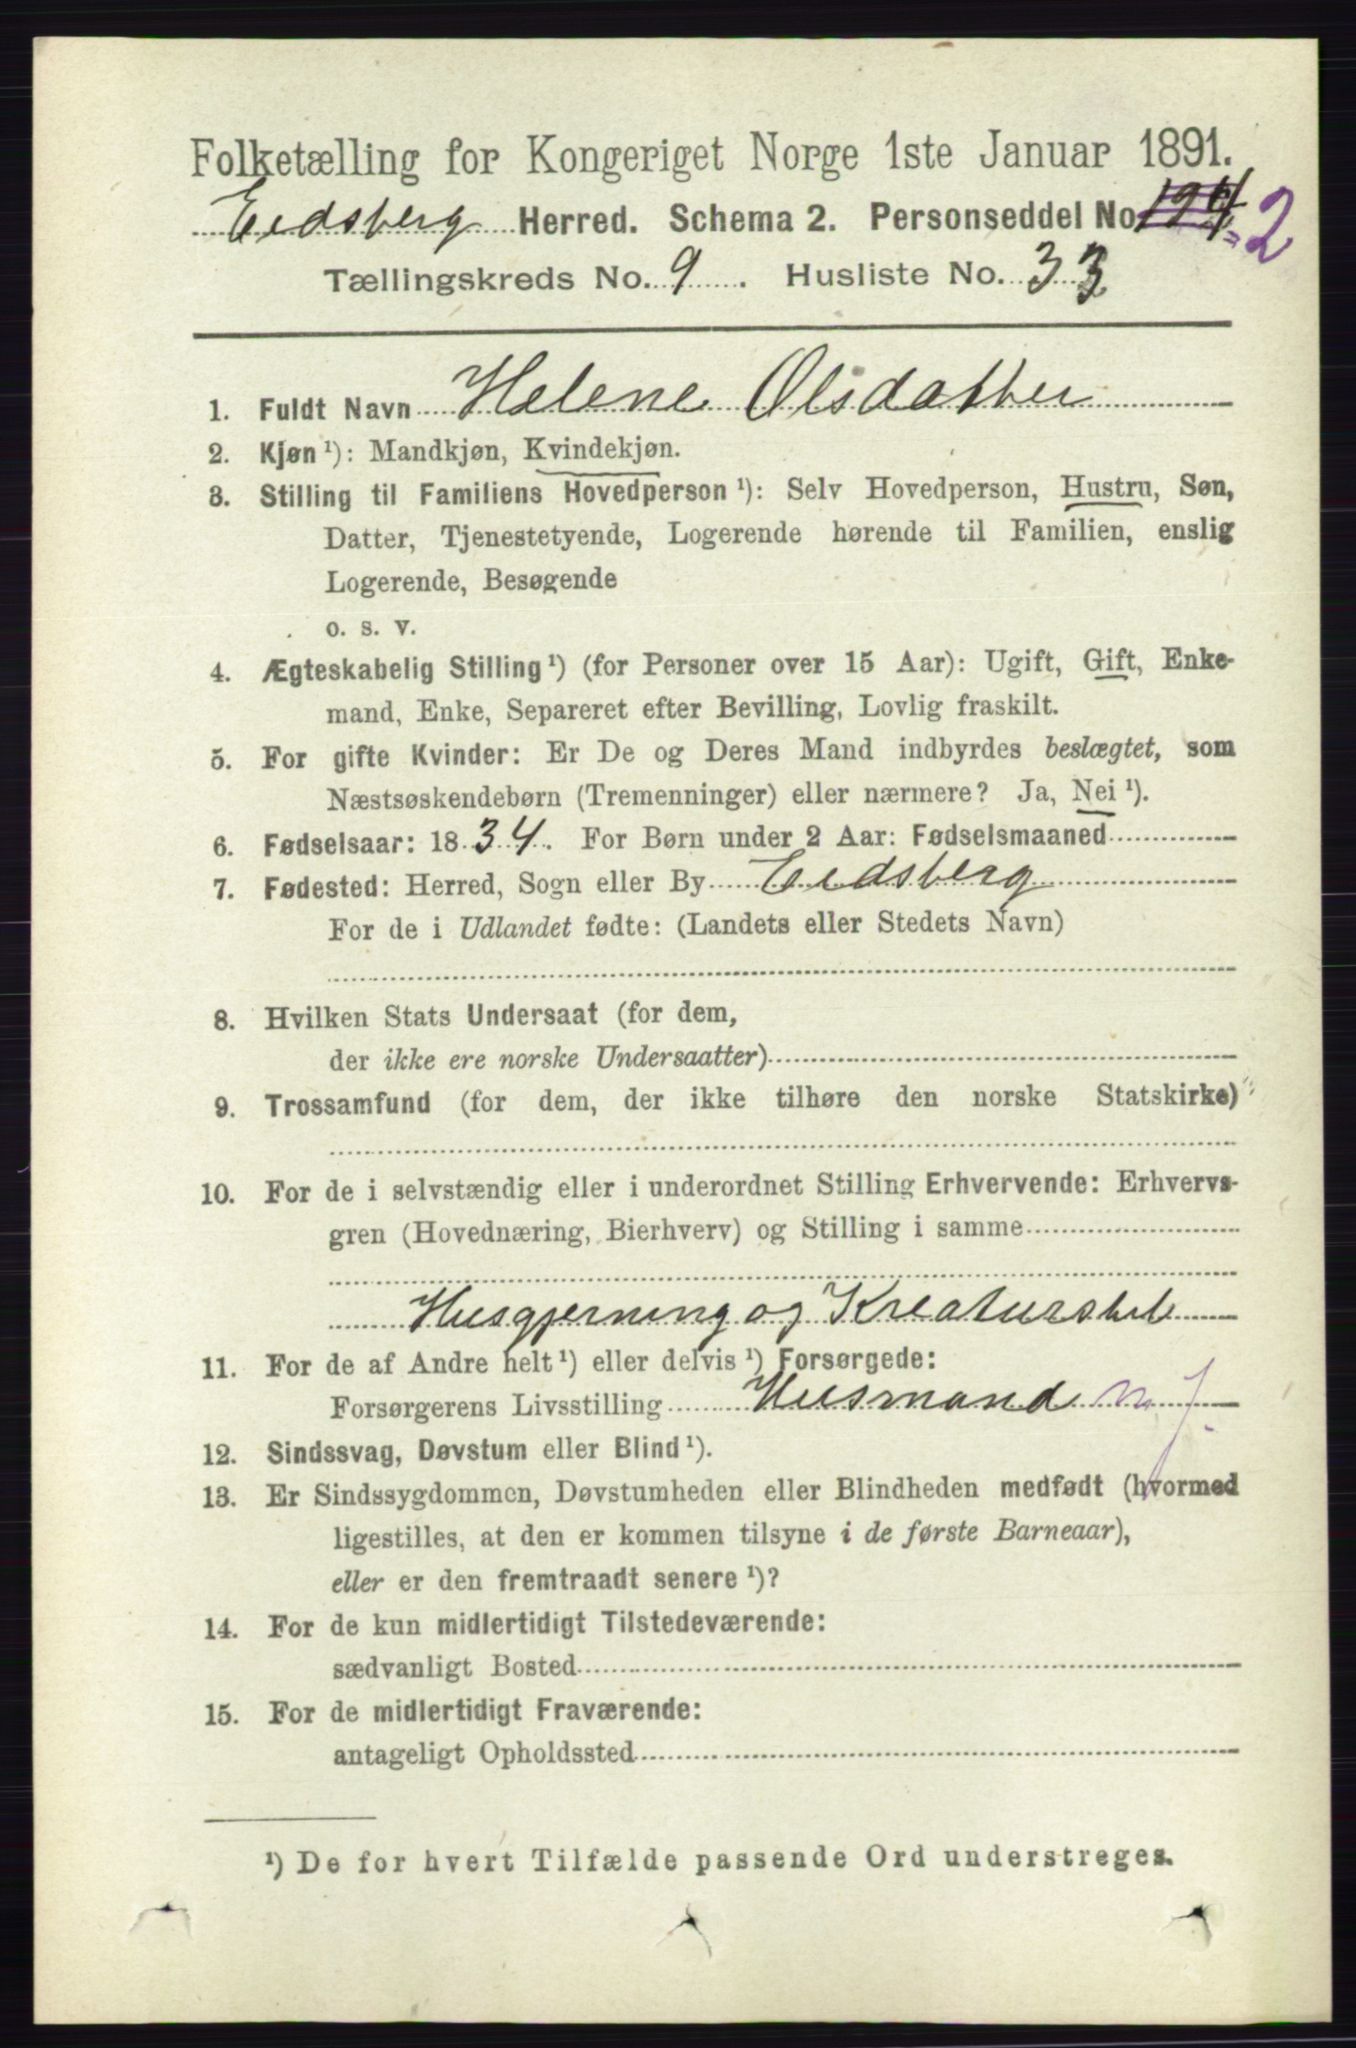 Folketælling for Kongeriget Norge 1ste Januar 1891.
Eidsberg Herred. Schema 2. Personseddel No. 2
Tællingskreds No. 9. Husliste No. 33
1. Fuldt Navn Helene Olsdatter
2. Kjøn ¹): Mandkjøn, Kvindekjøn.
3. Stilling til Familiens Hovedperson ¹): Selv Hovedperson, Hustru, Søn,
Datter, Tjenestetyende, Logerende hørende til Familien, enslig
Logerende, Besøgende
o. s. v.
4. Ægteskabelig Stilling ¹) (for Personer over 15 Aar): Ugift, Gift, Enke-
mand, Enke, Separeret efter Bevilling, Lovlig fraskilt.
5. For gifte Kvinder: Er De og Deres Mand indbyrdes beslægtet, som
Næstsøskendebørn (Tremenninger) eller nærmere? Ja, Nei ¹).
6. Fødselsaar: 1834. For Børn under 2 Aar: Fødselsmaaned
7. Fødested: Herred, Sogn eller By Eidsberg
For de i Udlandet fødte: (Landets eller Stedets Navn)
8. Hvilken Stats Undersaat (for dem,
der ikke ere norske Undersaatter)
9. Trossamfund (for dem, der ikke tilhøre den norske Statskirke)
10. For de i selvstændig eller i underordnet Stilling Erhvervende: Erhvervs-
gren (Hovednæring, Bierhverv) og Stilling i samme
Husgjerning og Kreaturstel
11. For de af Andre helt ¹) eller delvis ¹) Forsørgede:
Forsørgerens Livsstilling Husmand m. j.
12. Sindssvag, Døvstum eller Blind ¹).
13. Er Sindssygdommen, Døvstumheden eller Blindheden medfødt (hvormed
ligestilles, at den er kommen tilsyne i de første Barneaar),
eller er den fremtraadt senere ¹)?
14. For de kun midlertidigt Tilstedeværende:
sædvanligt Bosted
15. For de midlertidigt Fraværende:
antageligt Opholdssted
¹) De for hvert Tilfælde passende Ord understreges.